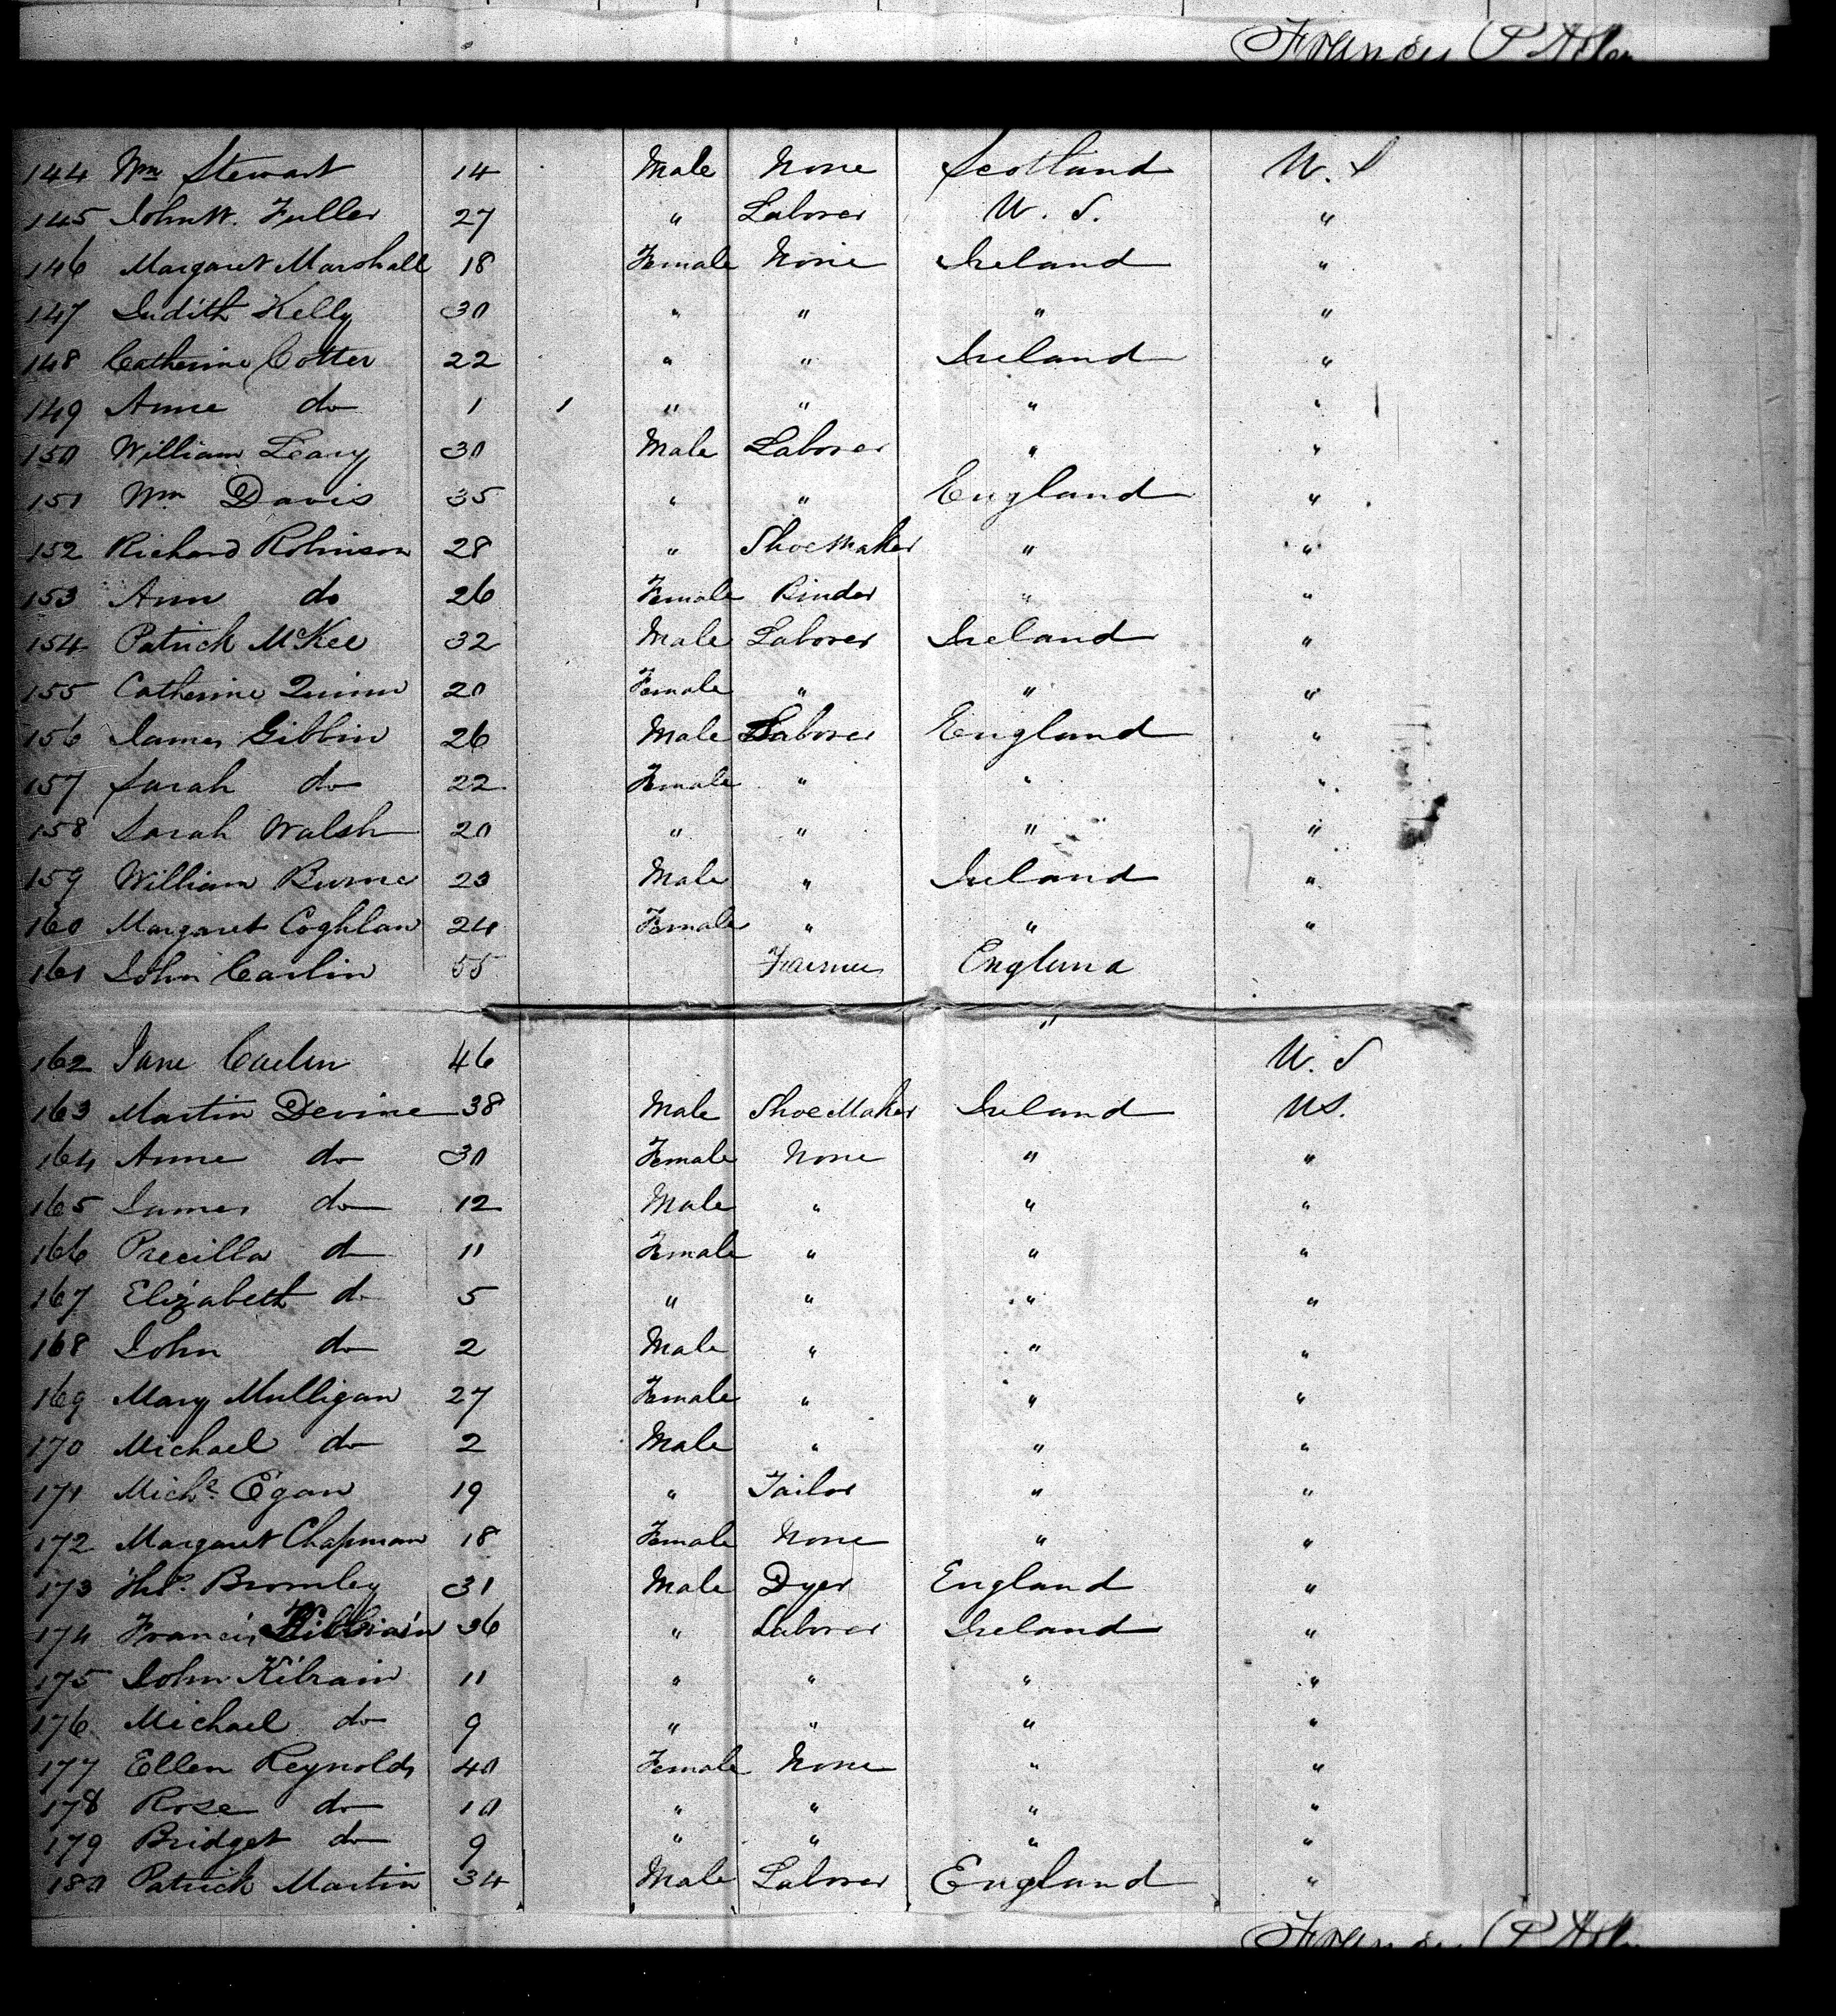 Francis P Allen
144 Wm Stewart 14 Male None Scotland U. S
145 John W. Fuller 27 " Laborer U. S. "
146 Margaret Marshall 18 Female None Ireland "
147 Judith Kelly 30 " " " "
148 Catherine Cotter 22 " " Ireland "
149 Anne do 1 1 " " " "
150 William Leary 30 Male Laborer " "
151 Wm Davis 35 " " England "
152 Richard Robinson 28 " Shoemaker " "
153 Ann do 26 Female Binder " "
154 Patrick McKee 32 Male Laborer Ireland "
155 Catherine Quinn 20 Female " " "
156 James Gibbin 26 Male Laborer England "
157 Sarah do 22 Female " " "
158 Sarah Walsh 20 " " " "
159 William Burne 23 Male " Ireland "
160 Margaret Coghlan 24 Female " " "
161 John Carlin 55 Farmer England
162 Jane Carlin 46 " U. S
163 Martin Devine 38 Male Shoe Maker Ireland US.
164 Anne do 30 Female None " "
165 James do 12 Male " " "
166 Precilla do 11 Female " " "
167 Elizabeth do 5 " " " "
168 John do 2 Male " " "
169 Mary Mulligan 27 Female " " "
170 Michael do 2 Male " " "
171 Michl Egan 19 " Tailor " "
172 Margaret Chapman 18 Female None " "
173 Ths. Bromley 31 Male Dyer England "
174 Francis Kilbrain 36 " Laborer Ireland "
175 John Kilrain 11 " " " "
176 Michael do 9 " " " "
177 Ellen Reynolds 40 Female None " "
178 Rose do 10 " " " "
179 Bridget do 9 " " " "
180 Patrick Martin 34 Male Laborer England "